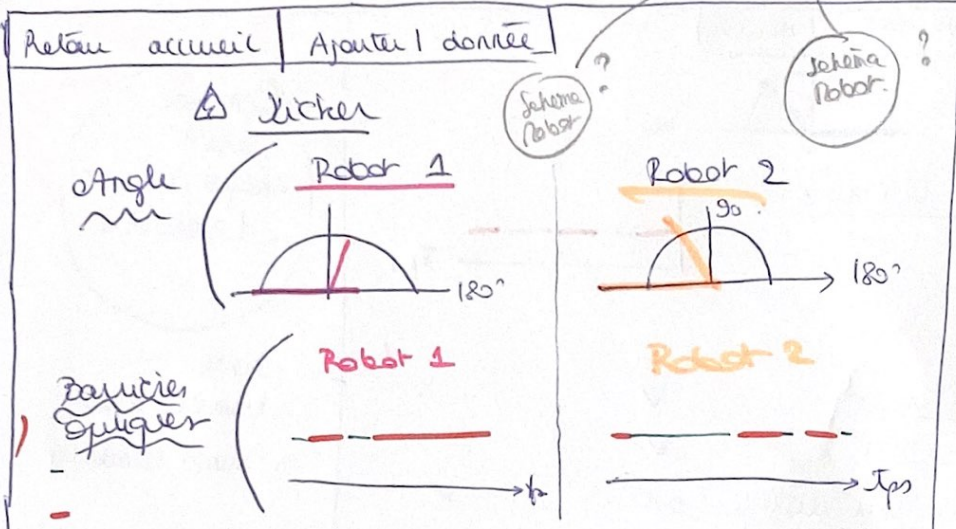 Retour accueil
Ajouter 1 donnée
Kicker
Schéma
Robot
?
Schéma
Robot.
?
Angle
Robot 1
180°
Robot 2
90.
180°
Barrières
Optiques
Robot 1
Robot 2
Tps